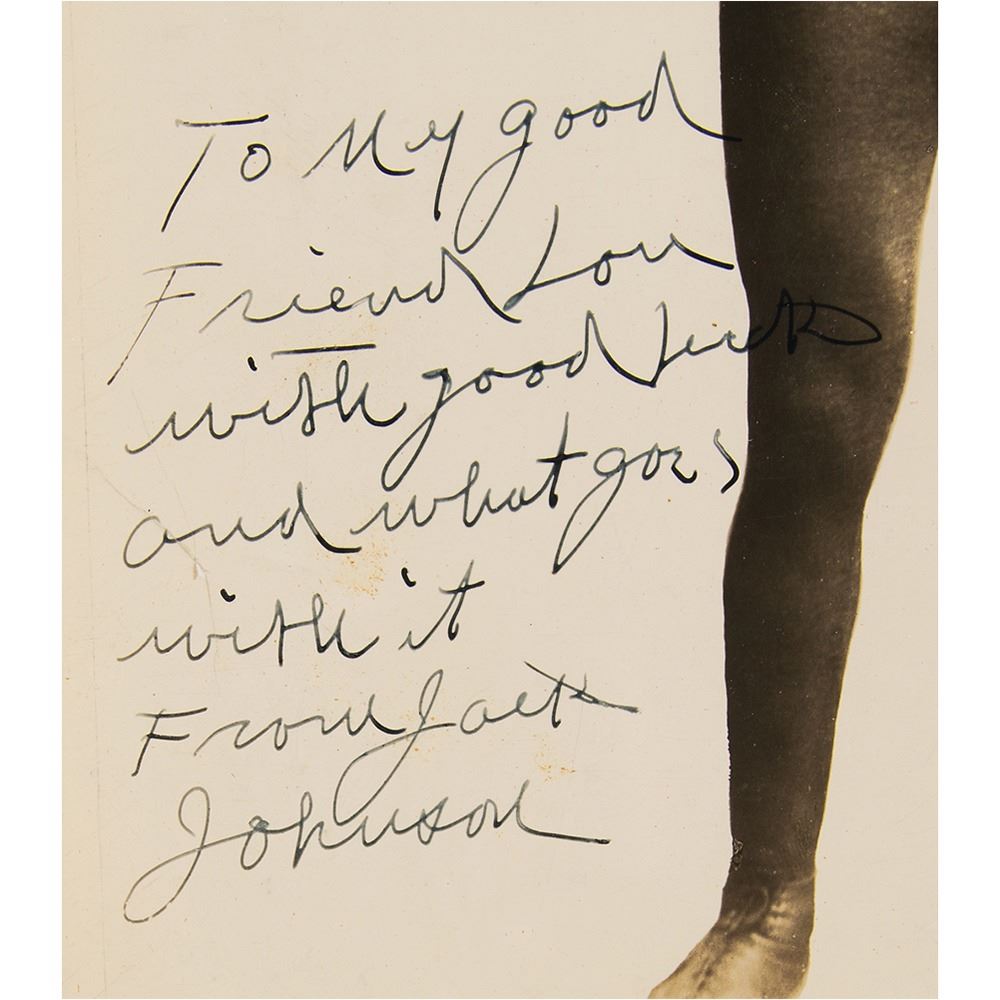 To My good
Friend Lou
with good luck
and what goes
with it
From Jack
Johnson